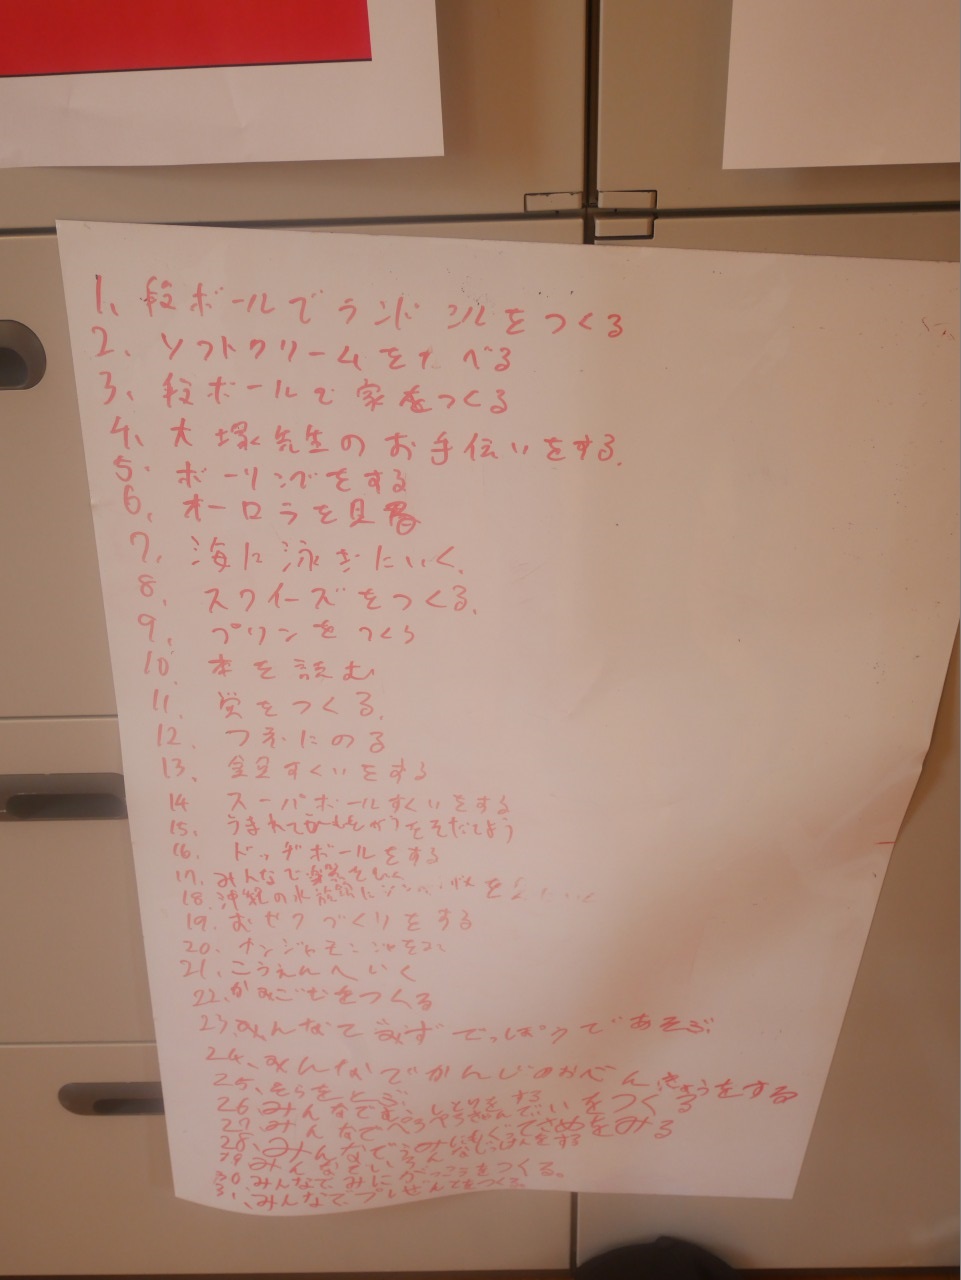 1、段ボールでランドンルをつくる
2、ソフトクリームをたべる
3、段ボールで家をつくる
4、大塚先生のお手伝いをする.
5、ボーリングをする
6、オーロラを見る
7、海に泳ぎにいく.
8、スクイーズをつくる.
9、プリンをつくる
10、本を読む
11、蛍をつくる.
12、つきにのる
13、金魚すくいをする
14 スーパボールすくいをする
15、うまれて をそだてよう
16、ドッヂボールをする
17、みんなで をひく
18、沖縄の水族館に を
19、おせりづくりをする
20、ナンジャモンジャを
21、こうえんへいく
22、かみごむをつくる
23、みんなでみずでっぽうであそぶ
24、みんなでかんじのおべんきょうをする
25、そらをとぶ
26、みんなで しとりをする
27、みんなでぺらぺら をつくる
28、みんなでうみにもぐってさめをみる
29、みんなでいろんな をする
30 みんなでみに がっこうをつくる。
31、みんなでプレぜんてをつくる。